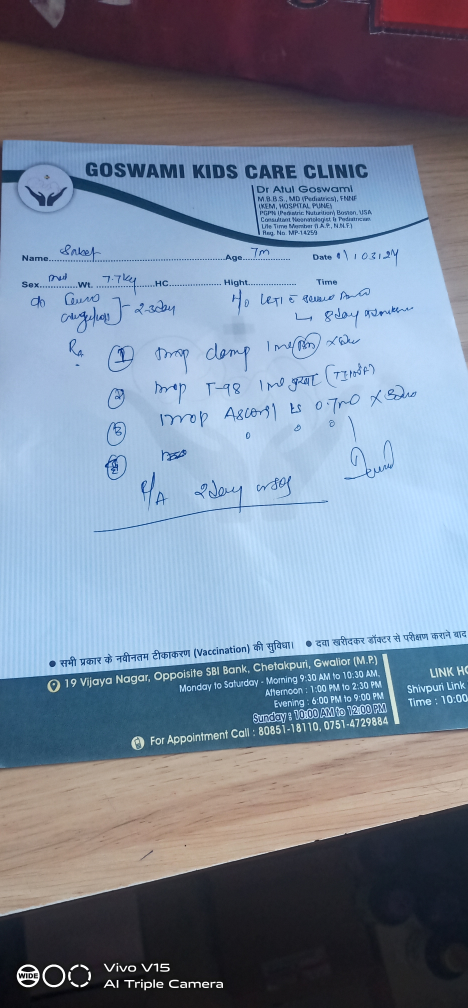 GOSWAMI KIDS CARE CLINIC
Dr Atul Goswami
M.B.B.S., MD (Pediatrics), FNNF
(KEM, HOSPITAL PUNE)
PGPN (Pediatric Nuturition) Boston, USA
Consultant Neonatologist & Pediatrician
Life Time Member (I.A.P., N.N.F.)
Reg. No. MP-14259
Name Age 7m Date
Sex Wt. 7.7kg HC Hight Time
2-3day
8day
① Drop clamp 1ml
② Drop T-98 1ml
③ Drop Ascoril LS 0.7ml
2day
• सभी प्रकार के नवीनतम टीकाकरण (Vaccination) की सुविधा। • दवा खरीदकर डॉक्टर से परीक्षण कराने बाद
19 Vijaya Nagar, Oppoisite SBI Bank, Chetakpuri, Gwalior (M.P.)
Monday to Saturday - Morning 9:30 AM to 10:30 AM,
Afternoon : 1:00 PM to 2:30 PM
Evening : 6:00 PM to 9:00 PM
Sunday : 10:00 AM to 12:00 PM
For Appointment Call : 80851-18110, 0751-4729884
LINK HO
Shivpuri Link
Time : 10:00
WIDE
Vivo V15
AI Triple Camera